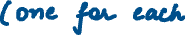 (one for each